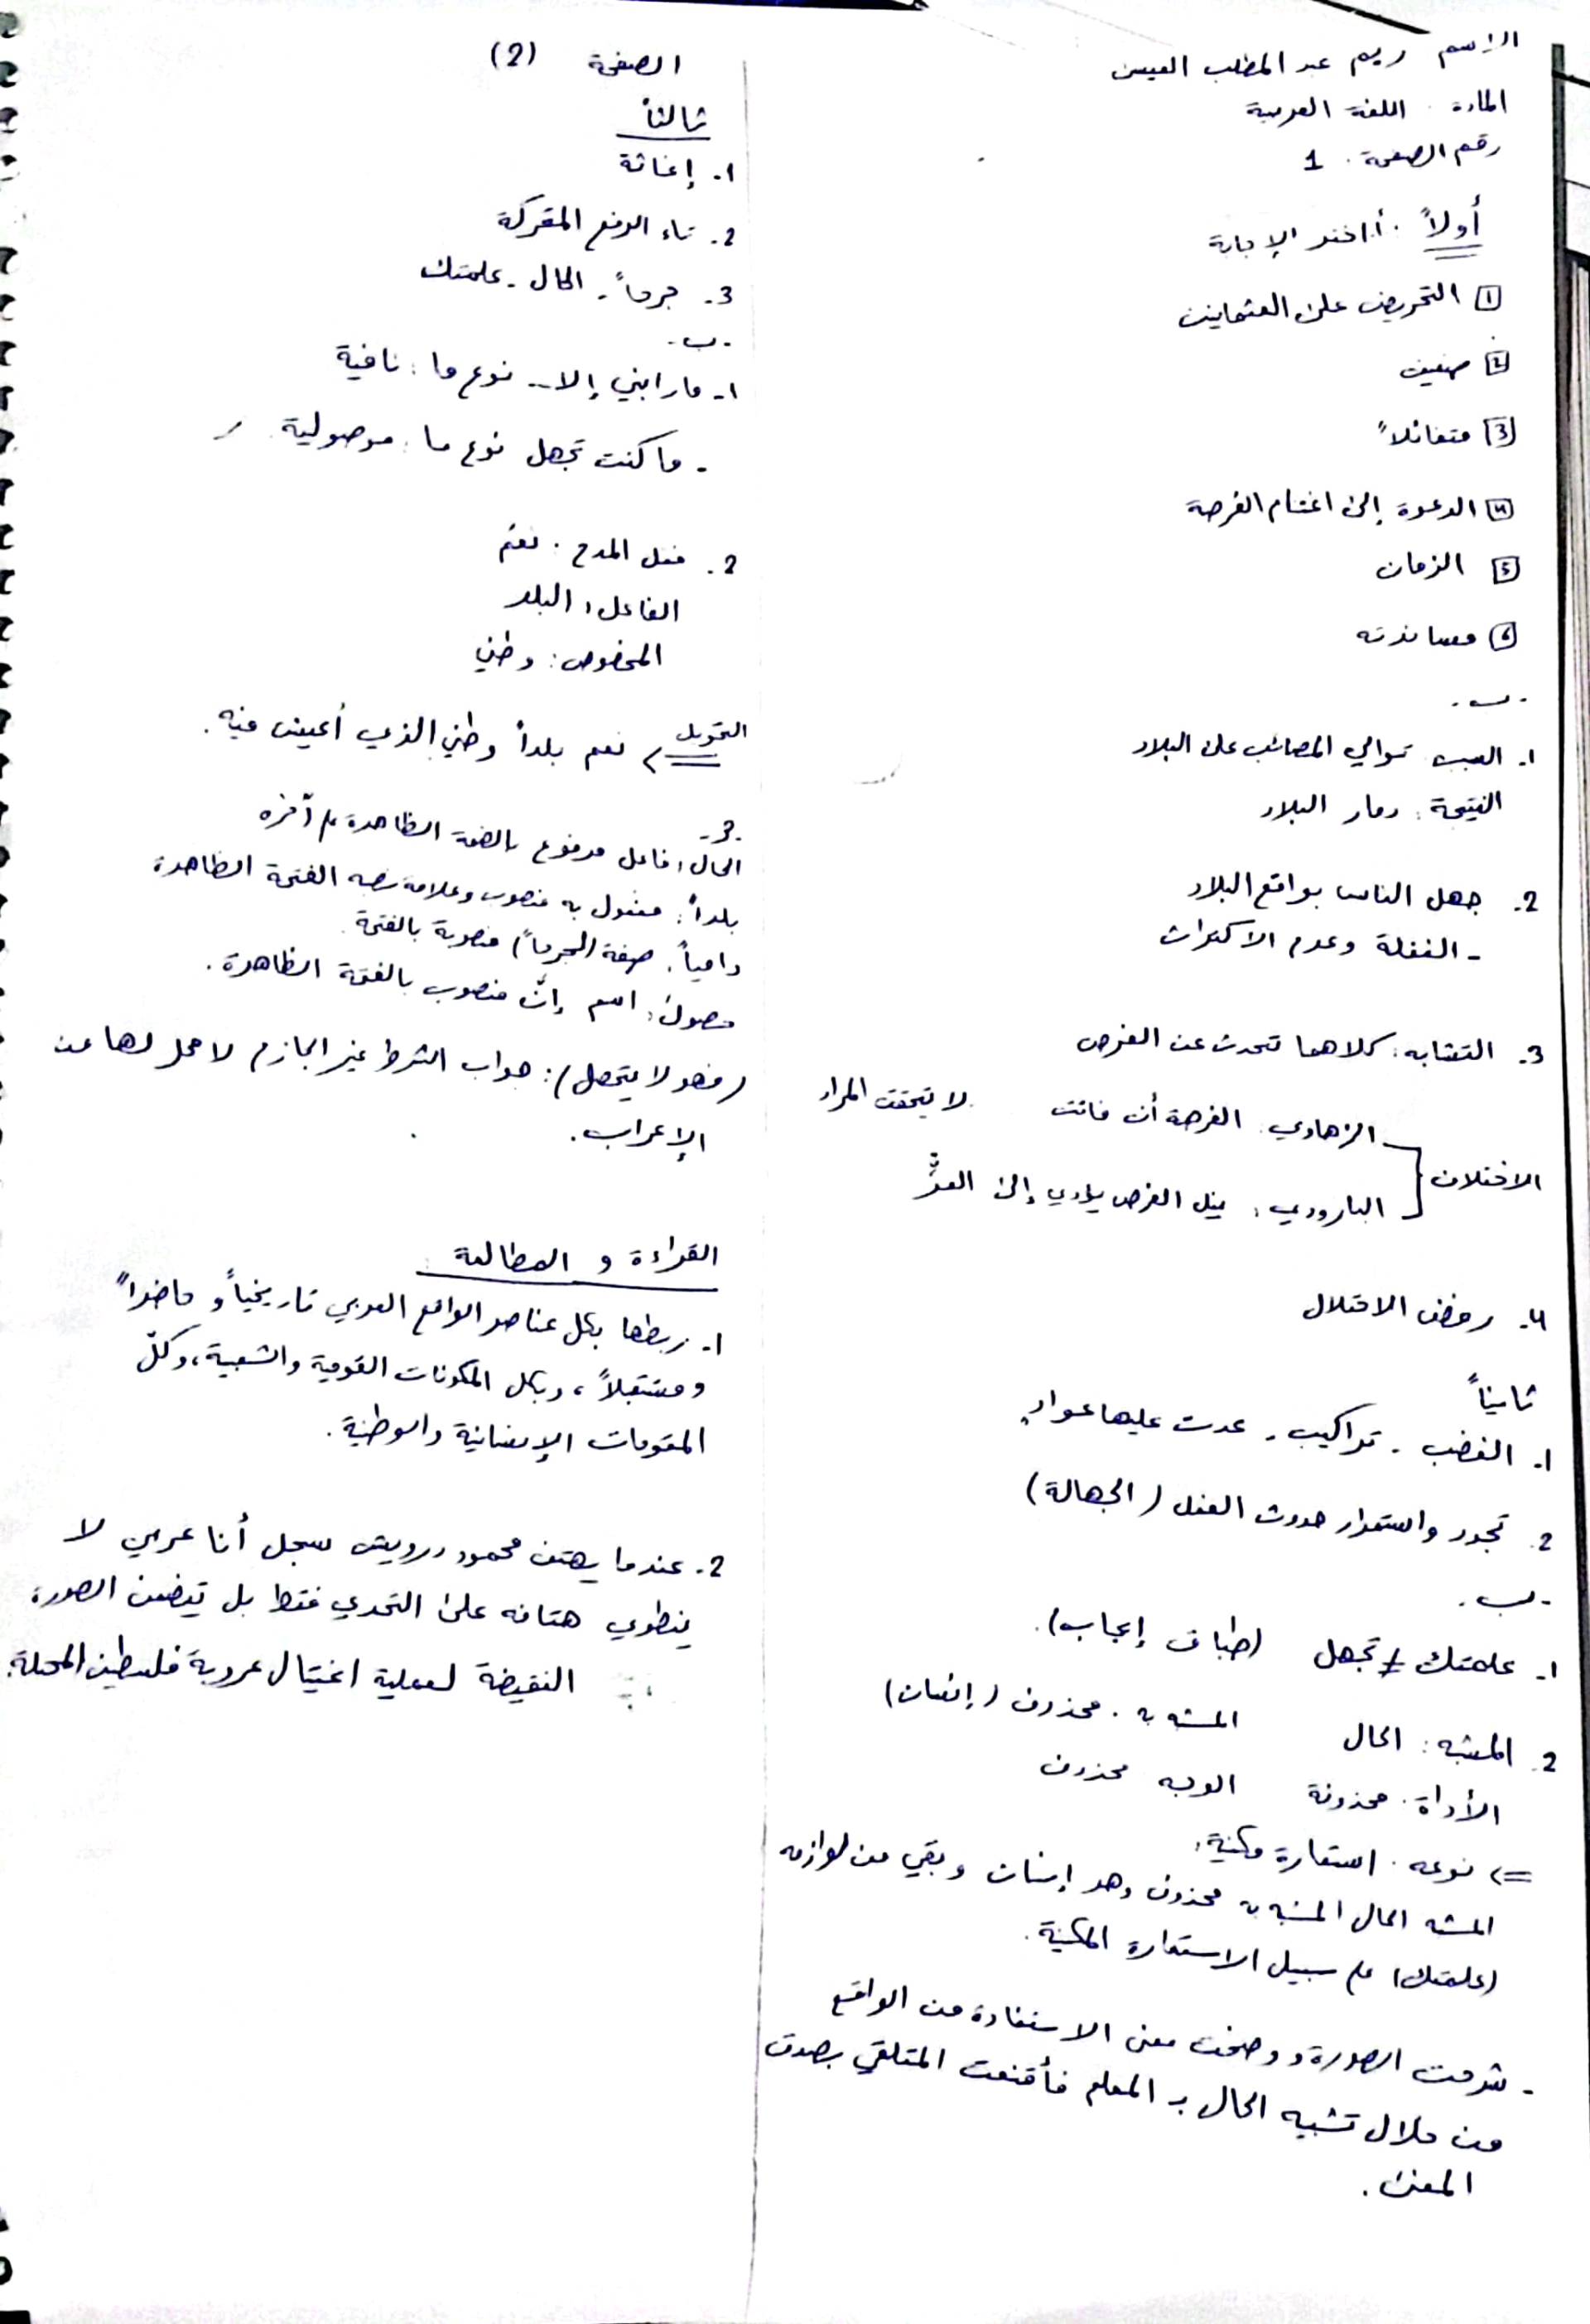 الاسم ريم عبد المطلب العيسى
المادة . اللغة العربية
رقم الصفحة . 1
أولاً . أ. اختر الإجابة
1 التحريض على العثمانيين
2 مهيض
3 متفائلاً
4 الدعوة إلى اغتنام الفرصة
5 الزمان
6 مساندته
- ب -
1. السبب توالي المصائب على البلاد
النتيجة : دمار البلاد
2. جهل الناس بواقع البلاد
- الغفلة وعدم الاكتراث
3. التشابه : كلاهما تحدث عن الفرص
الاختلاف
الزهاوي . الفرصة أن فاتت لا يتحقق المراد
البارودي : نيل الفرص يؤدي إلى العزّ
4. رفض الاحتلال
ثانياً
1. الغضب - تراكيب - عدت عليها عوادٍ
2. تجدد واستمرار حدوث الفعل (الجهالة)
- ب -
1. علمتك ≠ تجهل (طباق إيجاب) .
2. المشبه : الحال المشبه به . محذوف (إنسان)
الأداة . محذوفة الوجه محذوف
=> نوعه . استعارة مكنية :
المشبه الحال المشبه به محذوف وهو إنسان وبقي من لوازمه
(علمتك) على سبيل الاستعارة المكنية .
- شرحت الصورة ووضحت معنى الاستفادة من الواقع
من خلال تشبيه الحال بـ المعلم فأقنعت المتلقي بصدق
المعنى .
الصفحة (2)
ثالثاً
1. إغاثة
2. تاء الرفع المتحركة
3. جرحاً - الحال - علمتك
- ب -
1- ما رابني إلا .. نوع ما : نافية
- ما كنت تجهل نوع ما : موصولية
2. فعل المدح . نعم
الفاعل : البلد
المخصوص : وطني
التحويل => نعم بلداً وطني الذي أعيش فيه .
-3-
الحالُ : فاعل مرفوع بالضمة الظاهرة على آخره
بلداً : مفعول به منصوب وعلامة نصبه الفتحة الظاهرة
دامياً . صفة (لجرحاً) منصوبة بالفتحة .
حصولَ : اسم إنَّ منصوب بالفتحة الظاهرة .
(فهو لا يتحصل) : جواب الشرط غير الجازم لا محل لها من
الإعراب .
القراءة و المطالعة
1. ربطها بكل عناصر الواقع العربي تاريخياً و حاضراً
ومستقبلاً ، وبكل المكونات القومية والشعبية ، وكلّ
المقومات الإنسانية والوطنية .
2. عندما يهتف محمود درويش سجل أنا عربي لا
ينطوي هتافه على التحدي فقط بل تتضمن الصورة
النقيضة لعملية اغتيال عروبة فلسطين المحتلة .